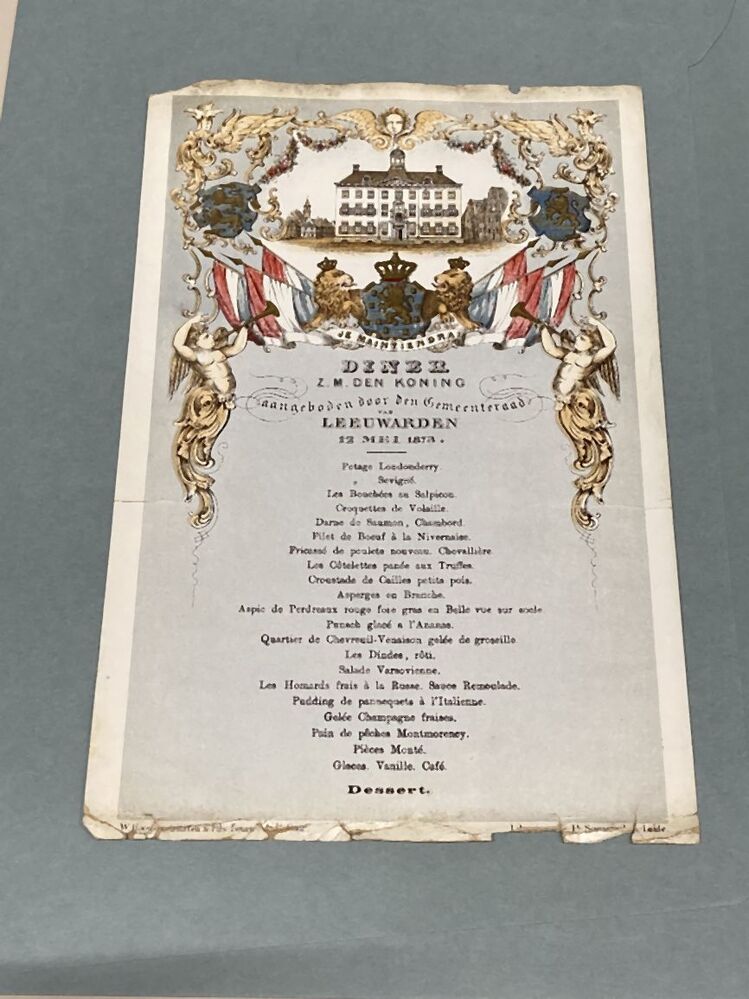 JE MAINTIENDRAI
DINER
Z.M. DEN KONING
aangeboden door den Gemeenteraad
VAN
LEEUWARDEN
12 MEI 1873.
Potage Londonderry.
„ Sevigné.
Les Bouchées au Salpicon.
Croquettes de Volaille.
Darne de Saumon, Chambord.
Filet de Boeuf à la Nivernaise.
Fricassé de poulets nouveau. Chevallière
Les Côtelettes panée aux Truffes.
Croustade de Cailles petits pois.
Asperges en Branche.
Aspic de Perdreaux rouge foie gras en Belle vue sur socle.
Punsch glacé a l'Ananas.
Quartier de Chevreuil-Venaison gelée de groseille.
Les Dindes, rôti.
Salade Varsovienne.
Les Homards frais à la Russe. Sauce Remoulade.
Pudding de pannequets à l'Italienne.
Gelée Champagne fraises.
Pain de pêches Montmorency.
Pièces Monté.
Glaces. Vanille. Café.
Dessert.